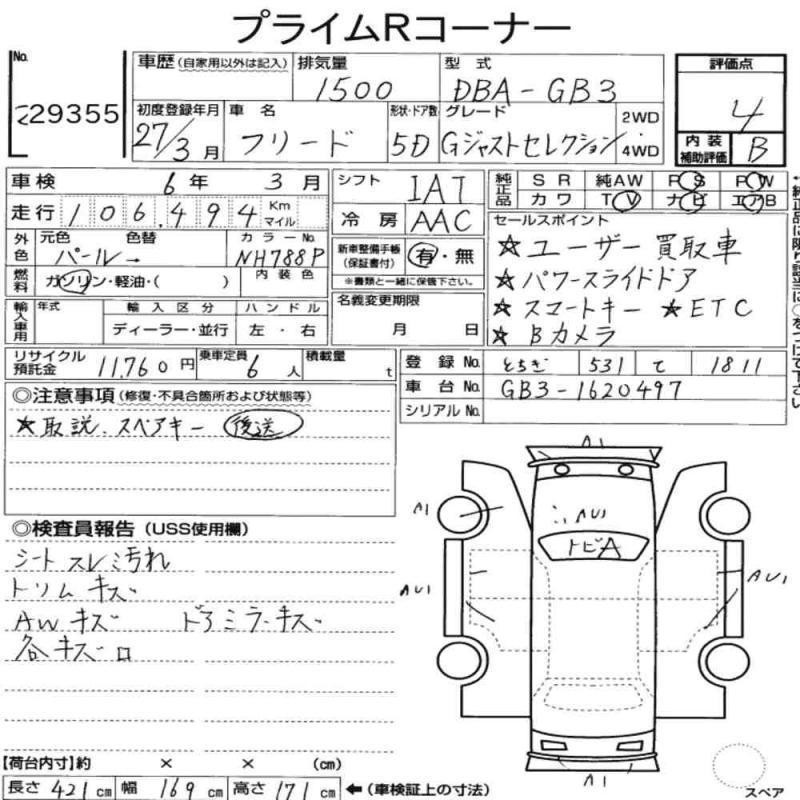 プライムRコーナー
No. 29355
車歴 (自家用以外は記入) 排気量 1500 型式 DBA-GB3
初度登録年月 27/3月 車名 フリード 形状・ドア数 5D グレード Gジャストセレクション 2WD 4WD
評価点 4
内装補助評価 B
車検 6年 3月
走行 106,494 Km マイル
シフト IAT
冷房 AAC
純正品 SR 純AW PS PW
カワ TV ナビ エアB
外色 元色 パール 色替 → カラーNo. NH788P
燃料 ガソリン・軽油・( ) 内装色
新車整備手帳(保証書付) 有・無
※書類と一緒に保管下さい。
名義変更期限 月 日
輸入車用 年式 輸入区分 ディーラー・並行 ハンドル 左・右
セールスポイント
★ユーザー買取車
★パワースライドドア
★スマートキー ★ETC
★Bカメラ
リサイクル預託金 11,760円 乗車定員 6人 積載量 t
登録No. とちぎ 531 て 1811
車台No. GB3-1620497
シリアルNo.
◎注意事項 (修復・不具合箇所および状態等)
★取説、スペアキー 後送
◎検査員報告 (USS使用欄)
シート スレ 汚れ
トリム キズ
AW キズ ドアミラーキズ
各キズロ
A1
A1
AU1
トビA
AU1
AU1
A1
スペア
【荷台内寸】約 × × (cm)
長さ 421cm 幅 169cm 高さ 171cm ←(車検証上の寸法)